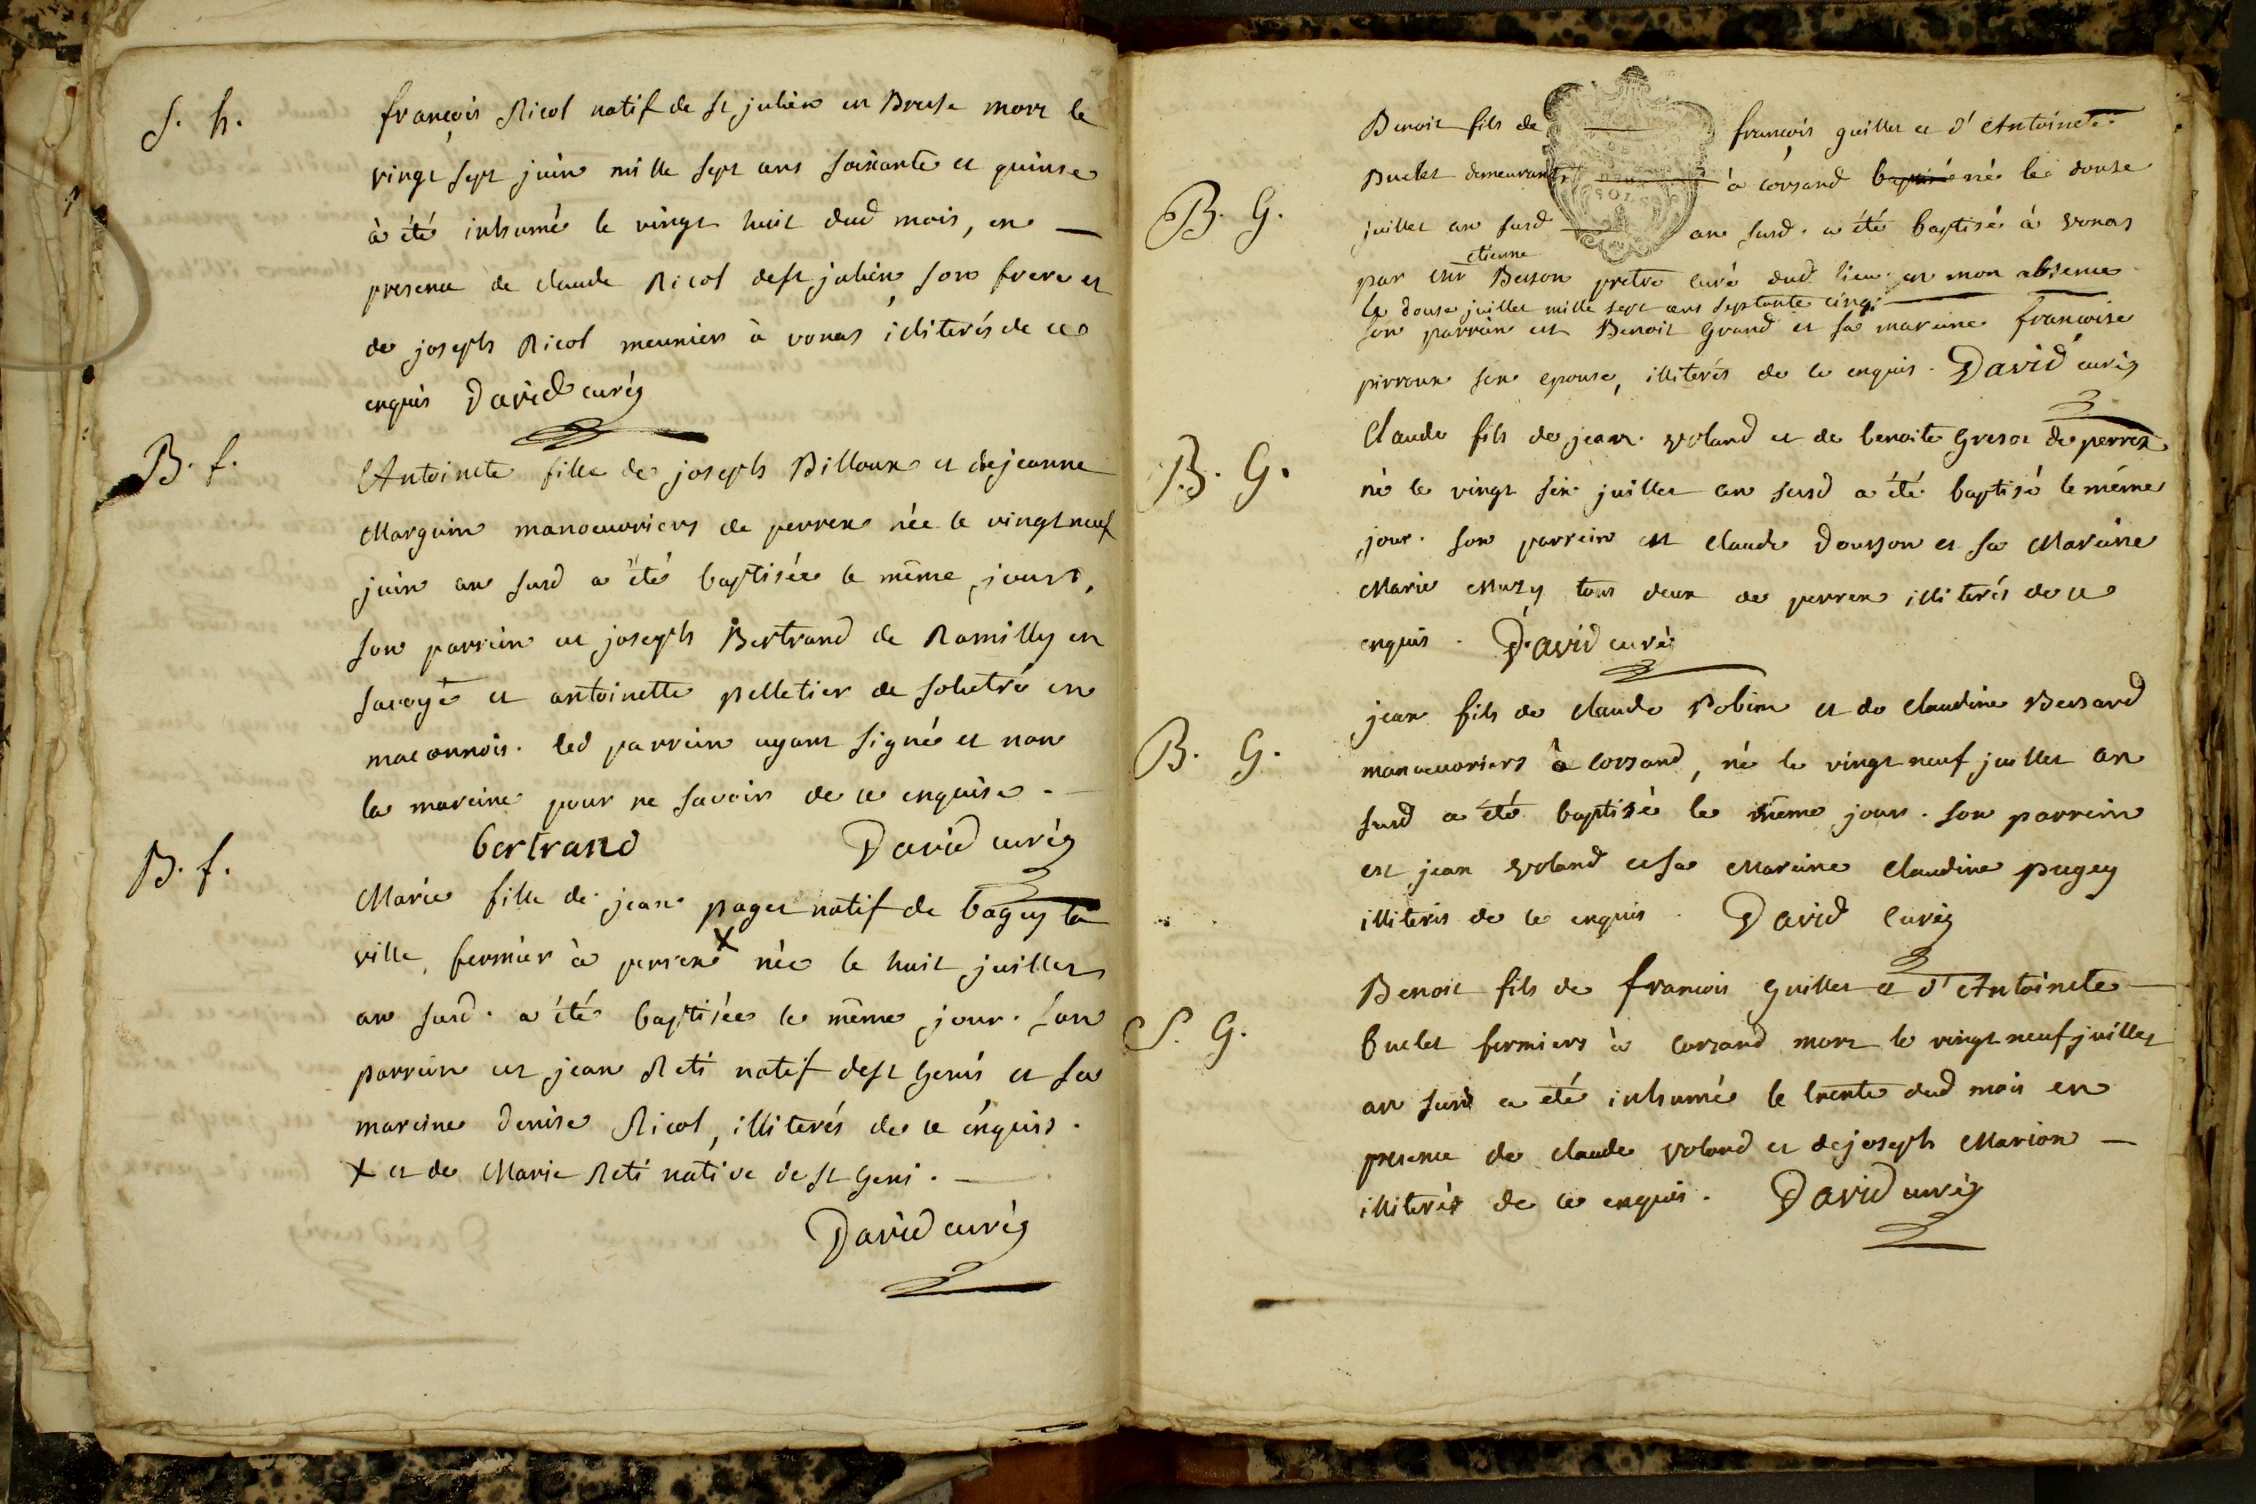 S. h.
françois Nicol natif de st julien en Bresse mort le
vingt sept juin mille sept cens soixante et quinse
à été inhumé le vingt huit dud mois, en
presence de claude Nicol de st julien, son frere et
de joseph Nicol meunier à vonas illiterés de ce
enquis David curé
B. f.
Antoinette fille de joseph Billoux et de jeanne
Marguin manoeuvriers de perrex née le vingt neuf
juin an susd a été baptisée le même jour,
son parrein est joseph Bertrand de Romilly en
savoye et antoinette pelletier de solutré en
maconnois. led parrein ayant signé et non
la mareine pour ne savoir de ce enquise.
bertrand David curé
B. f.
Marie fille de jean paget natif de bagey la
ville, fermier à perrex x née le huit juillet
an susd. a été baptisée le même jour. son
parrein est jean Reti natif de st Genis et sa
mareine denise Nicol, illiterés de ce enquis.
x et de Marie Reti native de st Geni.
David curé
B. G.
Benoit fils de françois guillet et d'Antoinette
Buclet demeurants à corsand baptisé né le douse
juillet an susd an susd. a été baptisé à vonas
etienne
par mr Besson pretre curé dud lieu en mon absence
le douse juillet mille sept cens septante cinq.
son parrein est Benoit Grand et sa mareine francoise
pirroux son epouse, illiterés de ce enquis. David curé
B. G.
Claude fils de jean voland et de benoite Gresot de perrex
né le vingt six juillet an susd a été baptisé le même
jour. son parrein est claude dousson et sa Mareine
Marie Muzy tous deux de perrex illiterés de ce
enquis. David curé
B. G.
jean fils de claude Robin et de claudine Bessard
manoeuvriers à corsand, né le vingt neuf juillet an
susd a été baptisé le même jour. son parrein
est jean voland et sa Mareine claudine pugey
illiterés de ce enquis. David curé
S. G.
Benoit fils de francois Guillet et d'Antoinette
buclet fermiers à corsand mort le vingt neuf juillet
an susd a été inhumé le trente dud mois en
presence de claude voland et de joseph Marion
illiterés de ce enquis. David curé